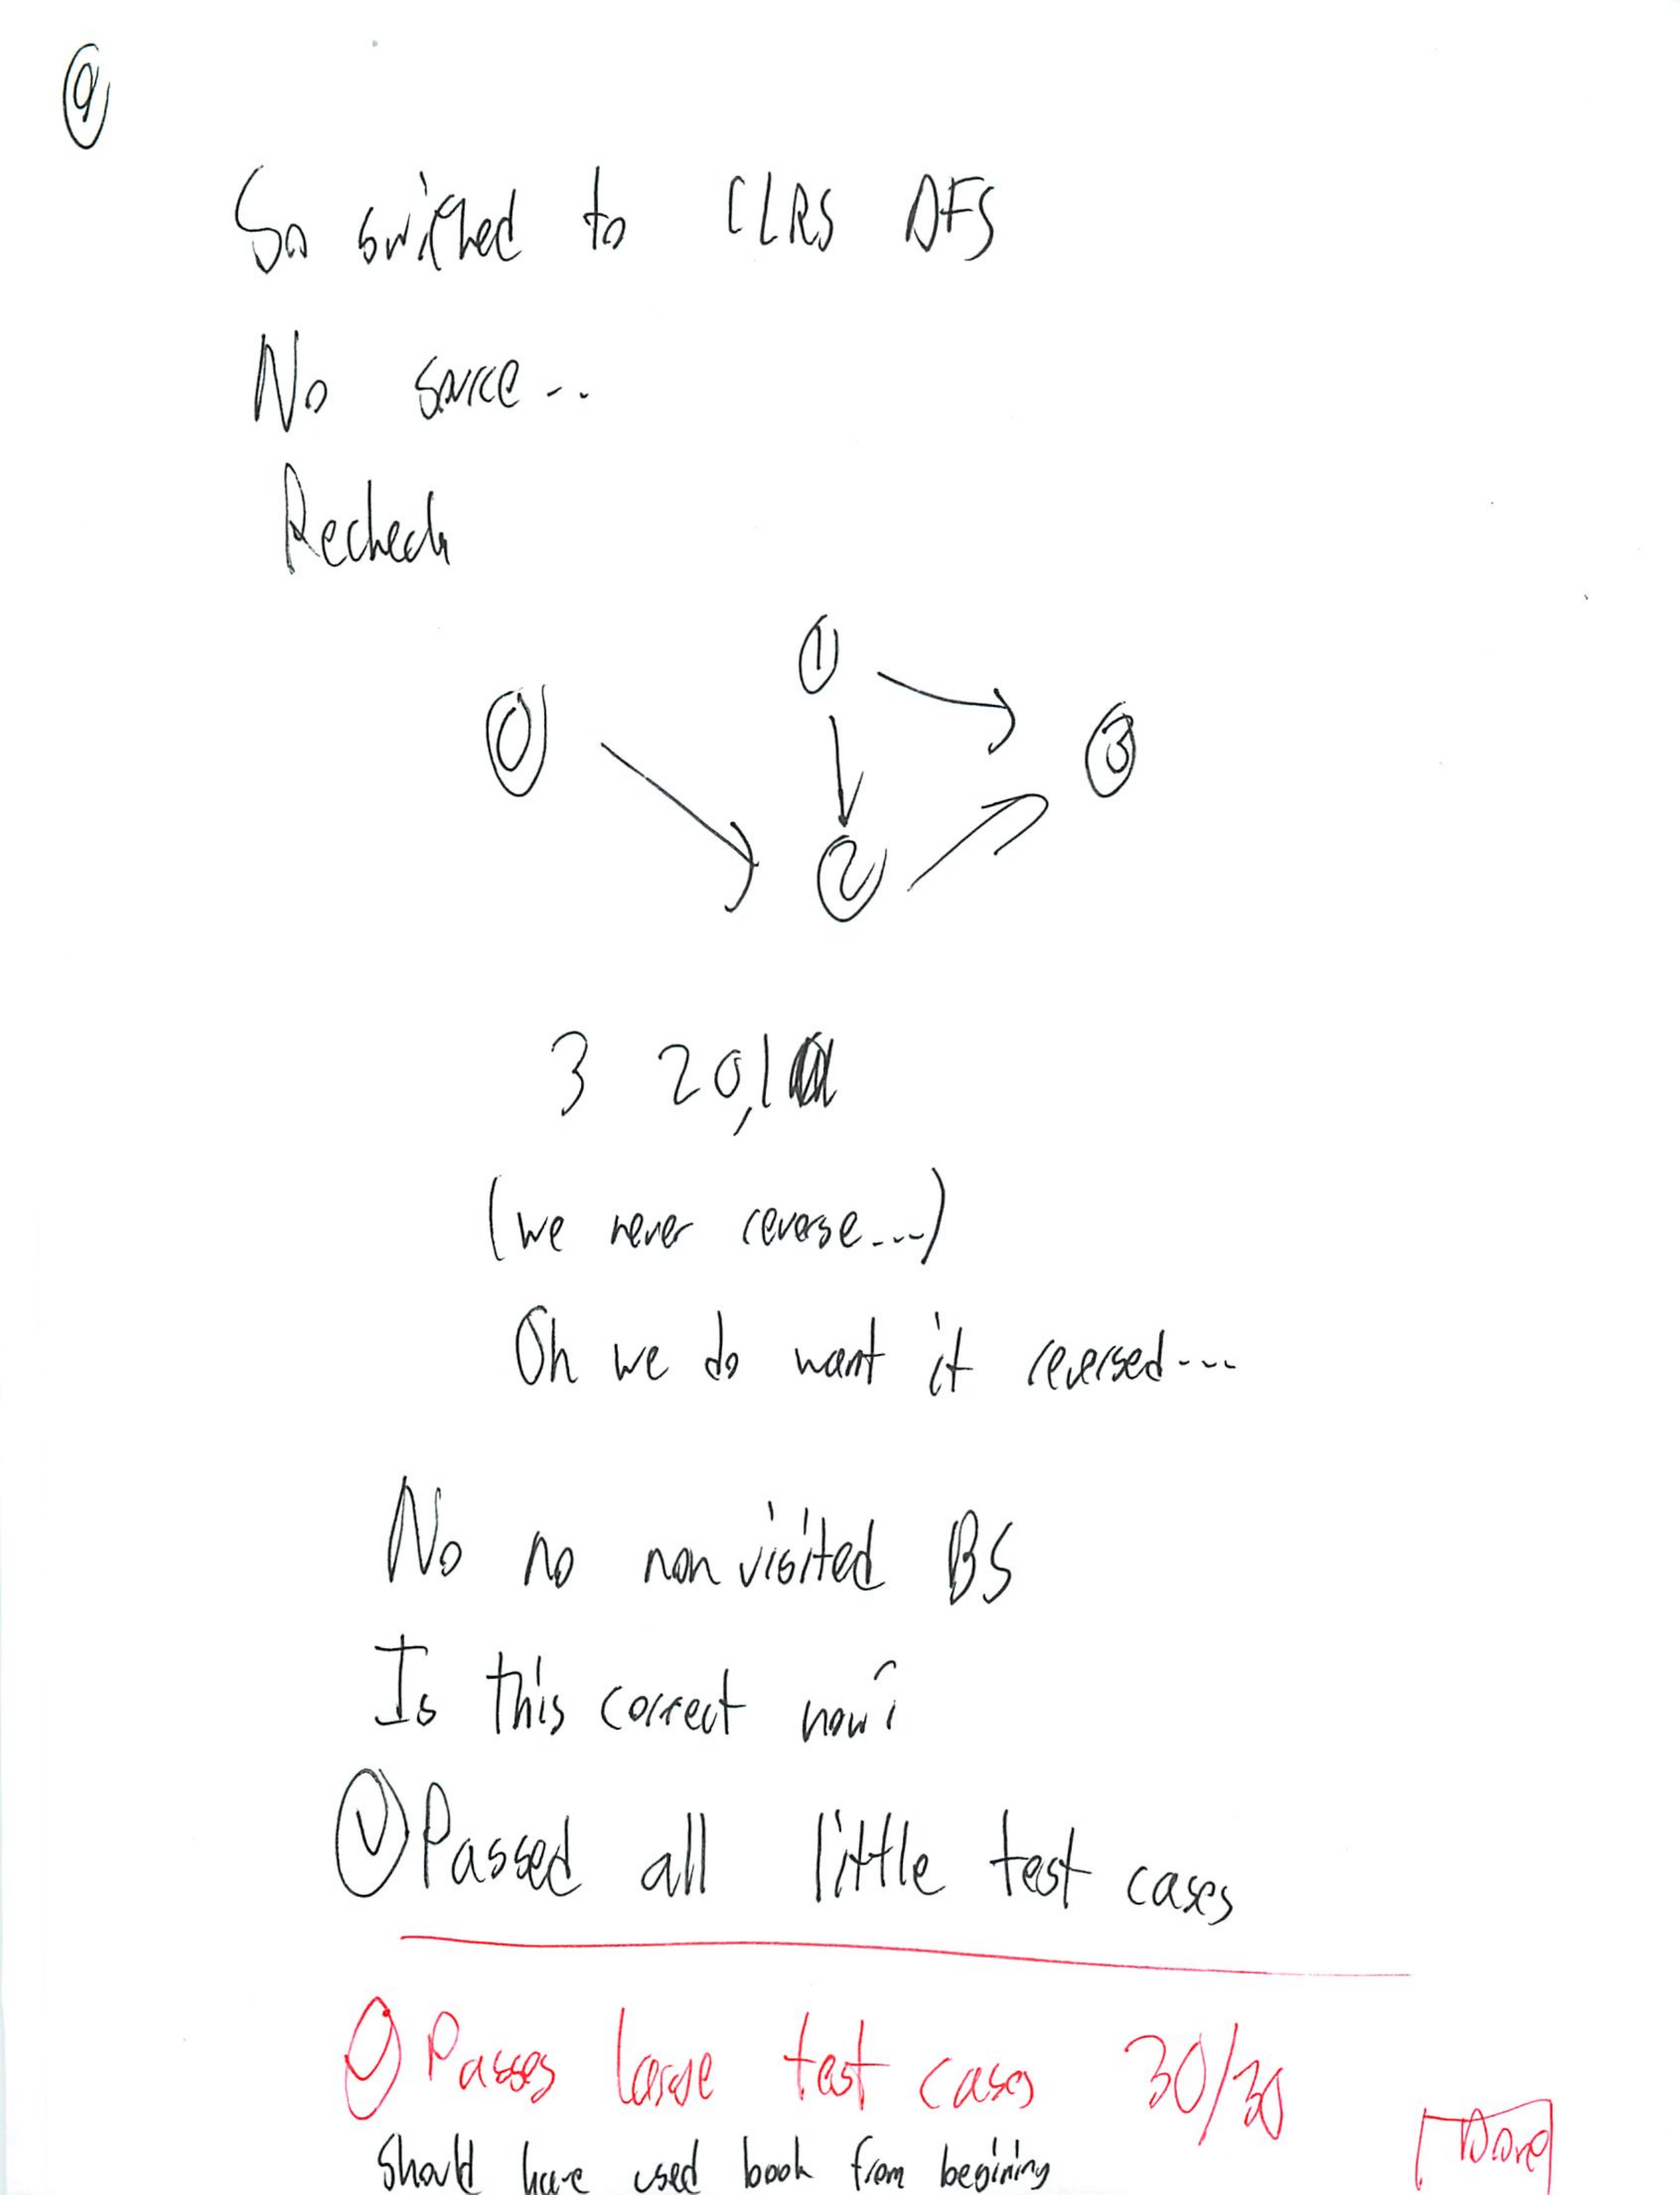 9
So switched to CLRS DFS
No source...
Recheck
1
0
3
2
3 2 0,1
(we never reverse....)
Oh we do want it reversed....
No no non visited BS
Is this correct now?
Passed all little test cases
Passes large test cases 30/30
Should have used book from begining
Done